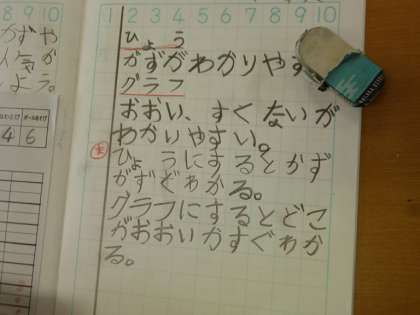 8 9 10
かずや
人気が
よう。
4 6
1 2 3 4 5 6 7 8 9 10
ひょう
かずがわかりやす
グラフ
おおい、すくないが
わかりやすい。
ひょうにするとかず
がすぐわかる。
グラフにするとどこ
がおおいかすぐわか
る。